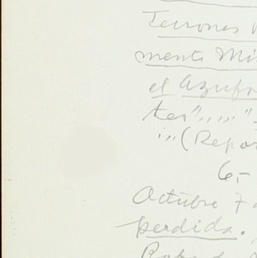 Terrones
mente Mi
el Azufr
tes" " " "
" (Repor
6-
Octubre 7 a
perdida.